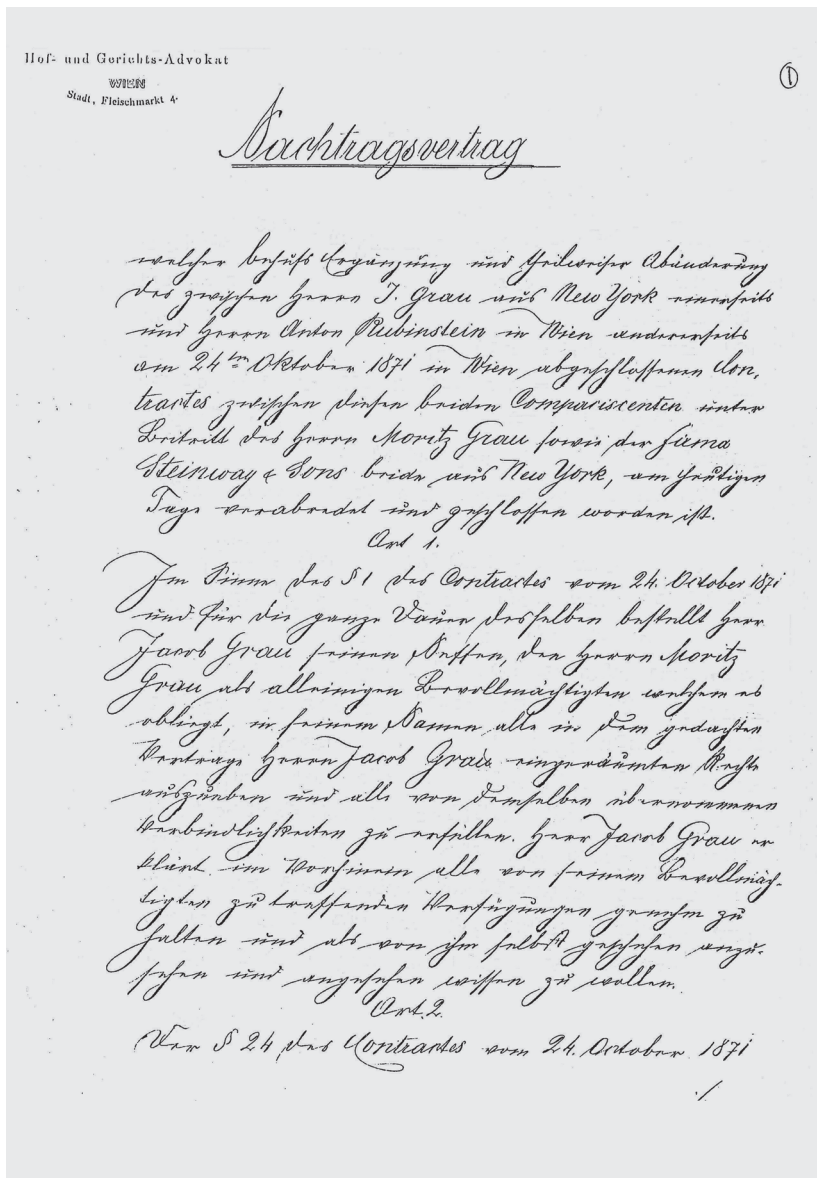 Hof- und Gerichts-Advokat
WIEN
Stadt, Fleischmarkt 4.
I
Nachtragsvertrag
welcher behufs Ergänzung und theilweiser Abänderung
des zwischen Herrn J. Grau aus New York einerseits
und Herrn Anton Rubinstein in Wien andererseits
am 24ten Oktober 1871 in Wien abgeschlossenen Con,
tractes zwischen diesen beiden Compaciscenten unter
Beitritt des Herrn Moritz Grau sowie der Firma
Steinway & Sons beide aus New York, am heutigen
Tage verabredet und geschlossen worden ist.
Art 1.
Im Sinne des § 1 des Contractes vom 24. October 1871
und für die ganze Dauer desselben bestellt Herr
Jacob Grau seinen Neffen, den Herrn Moritz
Grau als alleinigen Bevollmächtigten welchem es
obliegt, in seinem Namen alle in dem gedachten
Vertrage Herrn Jacob Grau eingeräumten Rechte
auszueben und alle von demselben übernommenen
Verbindlichkeiten zu erfüllen. Herr Jacob Grau er
klärt im Vorhinein alle von seinem Bevollmäch-
tigten zu treffenden Verfügungen genehm zu
halten und als von ihm selbst geschehen anzu-
sehen und angesehen wissen zu wollen.
Art. 2.
Der § 24 des Contractes vom 24. October 1871
./